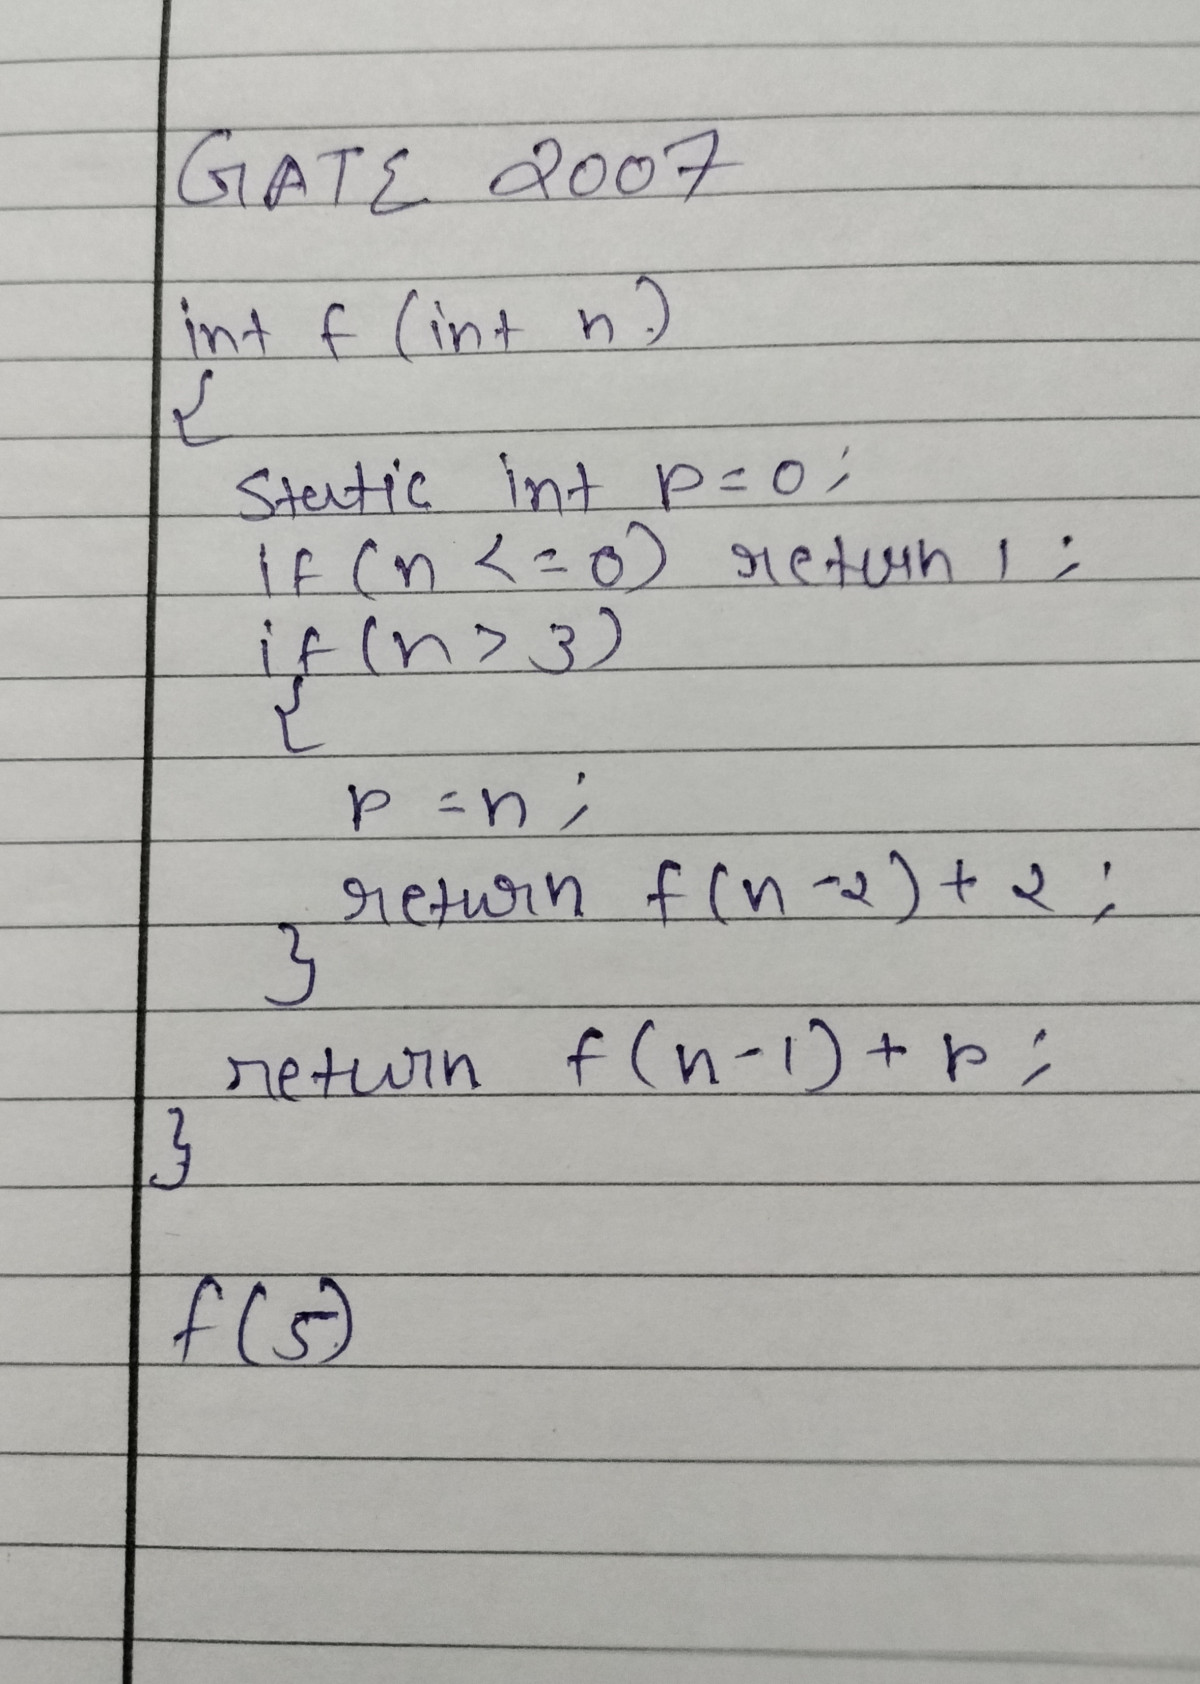 GATE 2007
int f (int n)
{
static int p=0;
if (n <=0) return 1;
if (n>3)
{
p =n;
return f(n-2)+2;
}
return f(n-1)+p;
}
f(5)